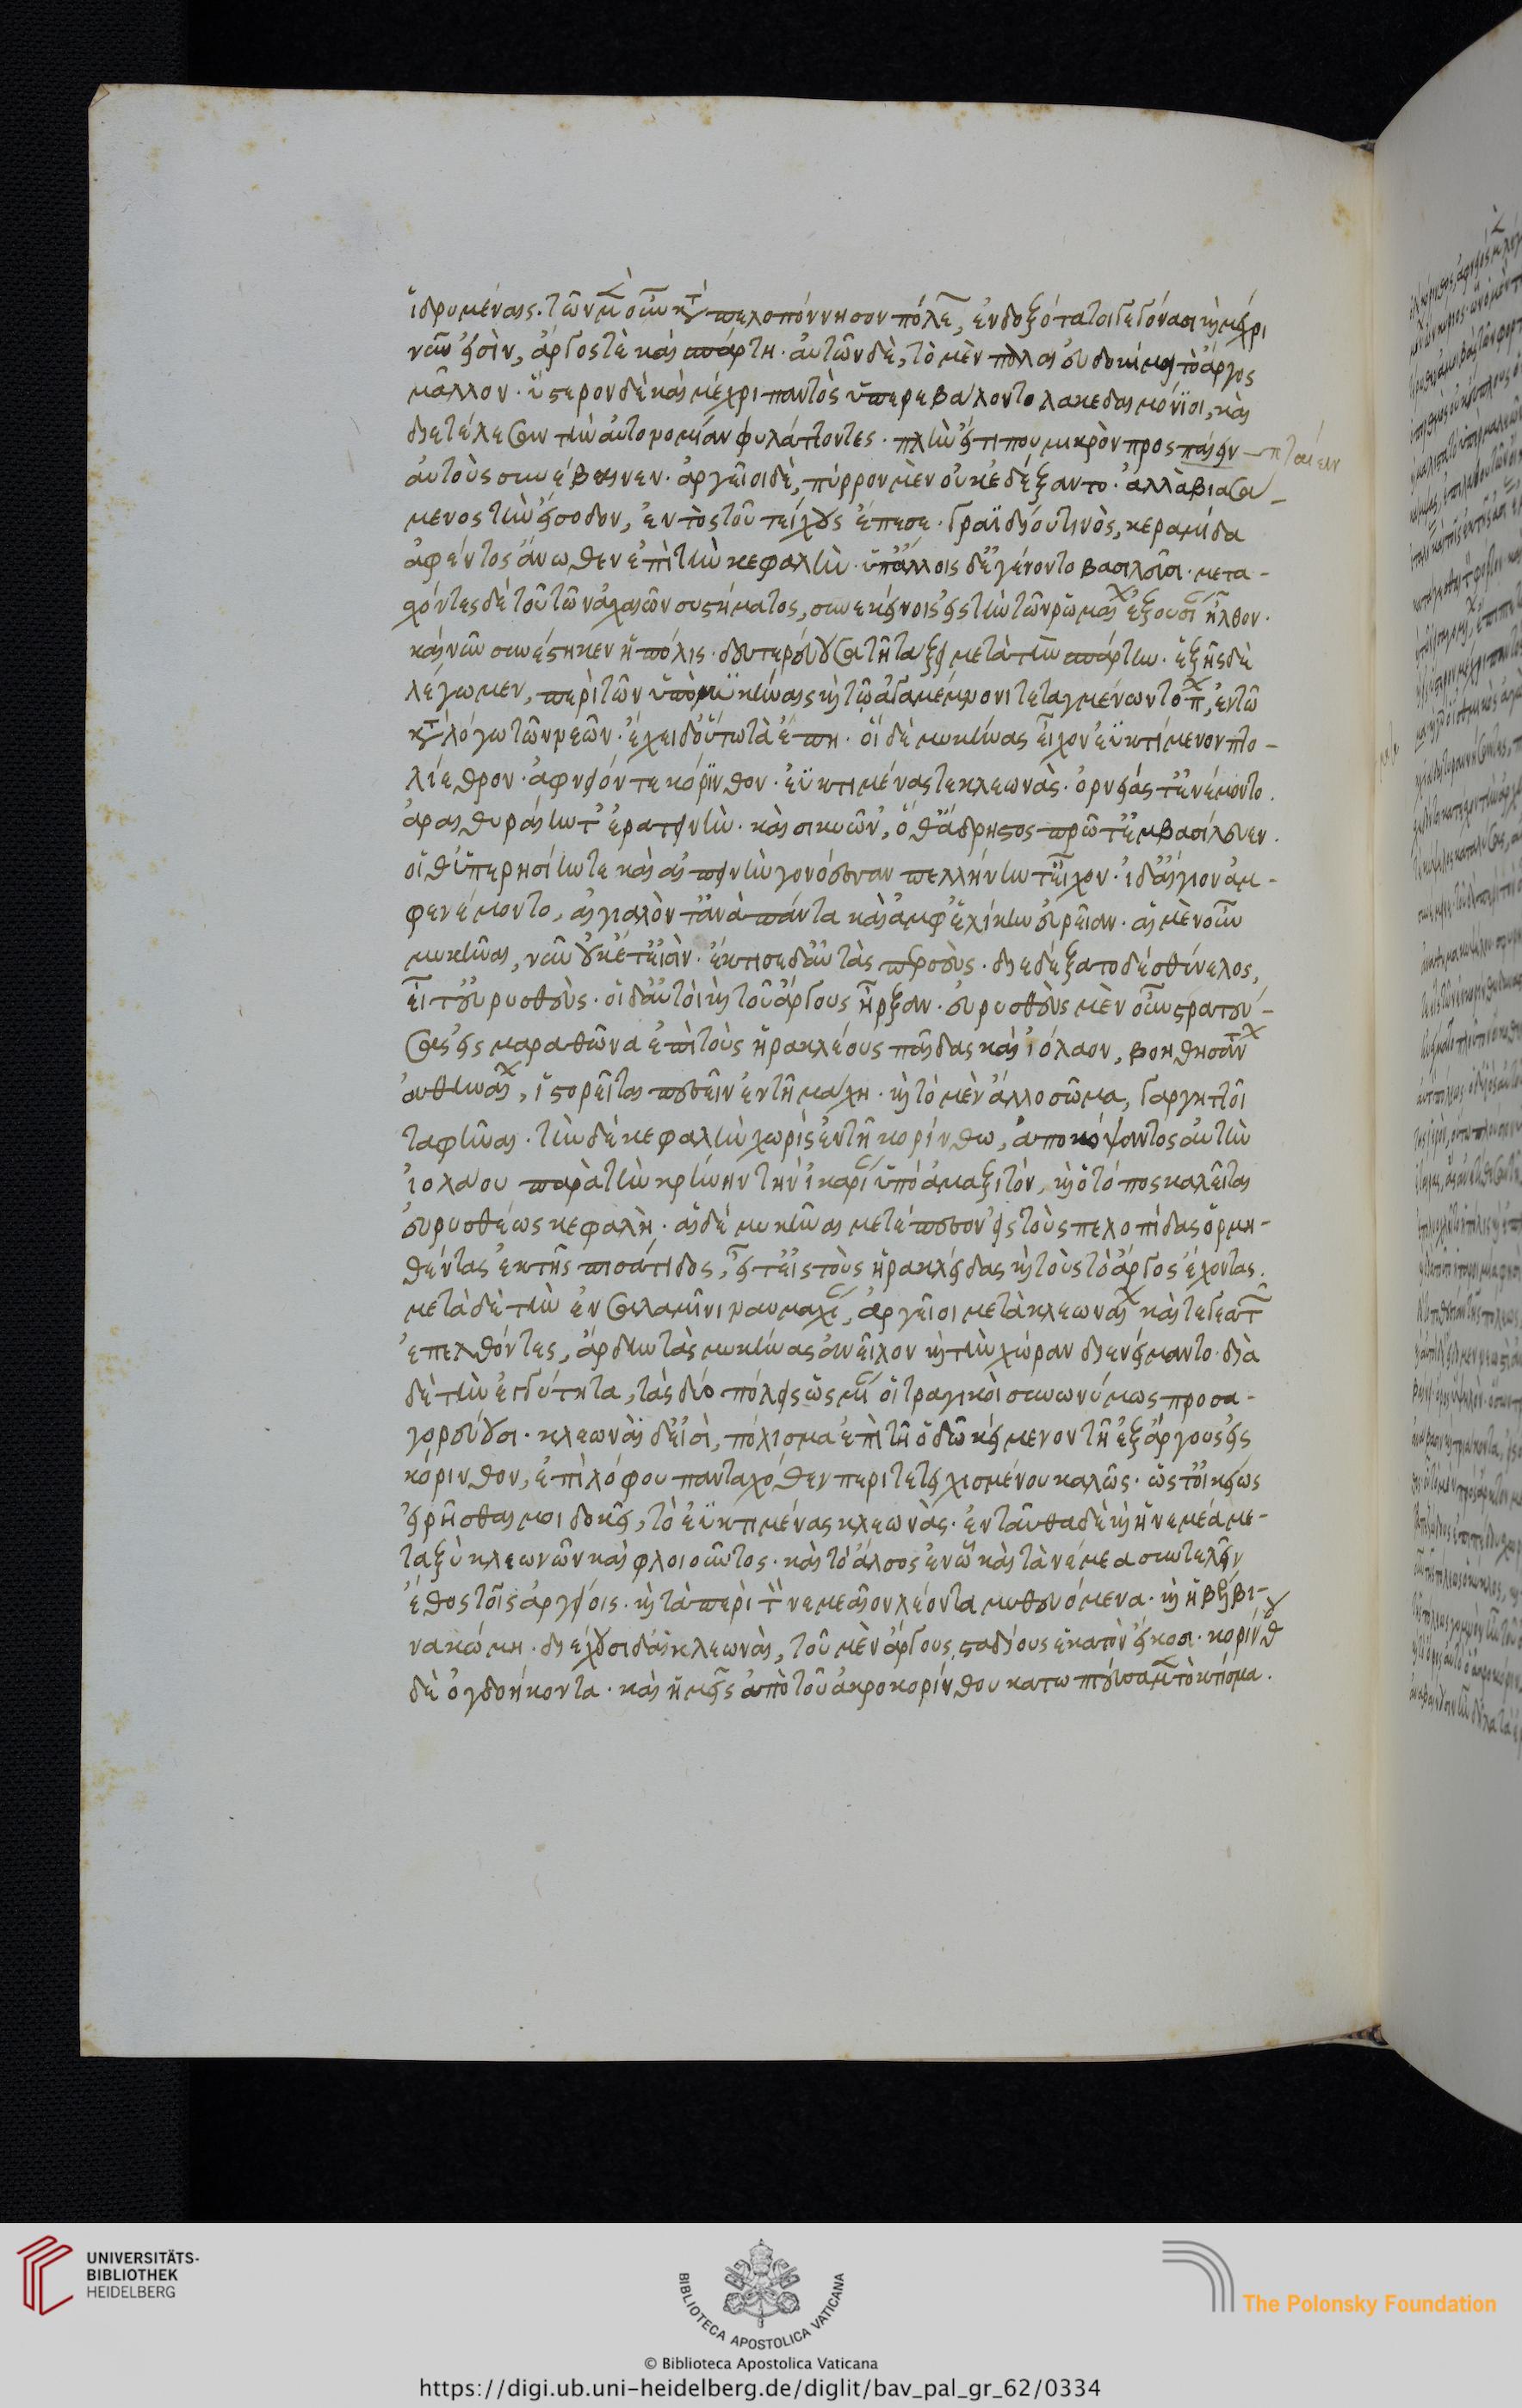 ἱδρυμέναις. τῶν μὲν οὖν κατὰ πελοπόννησον πόλεων, ἐνδοξόταται γεγόνασι καὶ μέχρι
νῦν εἰσὶν, ἄργος τὲ καὶ σπάρτη. αὐτῶν δὲ, τὸ μὲν πάλαι εὐδοκιμεῖ τὸ ἄργος
μᾶλλον. ὕστερον δὲ καὶ μέχρι παντὸς ὑπερεβάλοντο λακεδαιμόνιοι, καὶ
διετέλεσαν τὴν αὐτονομίαν φυλάττοντες. πλὴν εἴ τί που μικρὸν προσπαίειν — πταίειν
αὐτοὺς συνέβαινεν. ἀργεῖοι δὲ, πύρρον μὲν οὐκ ἐδέξαντο. ἀλλὰ βιασα-
μενος τὴν εἴσοδον, ἐντὸς τοῦ τείχους ἔπεσε. γραϊδίου τινὸς, κεραμίδα
ἀφέντος ἄνωθεν ἐπὶ τὴν κεφαλὴν. ὑπ' ἄλλοις δ' ἐγένοντο βασιλεῦσι. μετα-
χόντες δὲ τοῦ τῶν ἀχαιῶν συστήματος, σὺν ἐκείνοις εἰς τὴν τῶν ῥωμαίων ἐξουσίαν ἦλθον.
καὶ νῦν συνέστηκεν ἡ πόλις. δευτερεύουσα τῇ τάξει μετὰ τὴν σπάρτην. ἑξῆς δὲ
λέγωμεν, περὶ τῶν ὑπὸ μυκήναις καὶ τῷ ἀγαμέμνονι τεταγμένων τόπων, ἐν τῷ
καταλόγω τῶν νεῶν. ἔχει δ' οὕτω τὰ ἔπη. οἳ δὲ μυκήνας εἶχον ἐϋκτίμενον πτο-
λίεθρον. ἀφνειόν τε κόρινθον. ἐϋκτιμένας τε κλεωνάς. ὀρνειάς τ' ἐνέμοντο.
ἀραιθυρέην τ' ἐρατεινὴν. καὶ σικυῶν', ὅθ' ἄδρηστος πρῶτ' ἐμβασίλευεν.
οἵ θ' ὑπερησίην τε καὶ αἰπεινὴν γονόεσσαν πελλήνην τ' εἶχον. ἠδ' αἴγιον ἀμ-
φενέμοντο, αἰγιαλόν τ' ἀνὰ πάντα καὶ ἀμφ' ἑλίκην εὐρεῖαν. αἱ μὲν οὖν
μυκῆναι, νῦν οὐκέτ' εἰσὶν. ἔκτισε δ' αὐτὰς περσεὺς. διεδέξατο δὲ σθένελος,
εἶτ' εὐρυσθεὺς. οἱ δ' αὐτοὶ καὶ τοῦ ἄργους ἦρξαν. εὐρυσθεὺς μὲν οὖν στρατεύ-
σας εἰς μαραθῶνα ἐπὶ τοὺς ἡρακλέους παῖδας καὶ ἰόλαον, βοηθησάντων
ἀθηναίων, ἱστορεῖται πεσεῖν ἐν τῇ μάχη. καὶ τὸ μὲν ἄλλο σῶμα, γαργηττοῖ
ταφῆναι. τὴν δὲ κεφαλὴν χωρὶς ἐν τῇ κορίνθω, ἀποκόψαντος αὐτὴν
ἰολάου παρὰ τὴν κρήνην τὴν ἱκαρίαν ὑπὸ ἁμαξιτόν, καὶ ὁ τόπος καλεῖται
εὐρυσθέως κεφαλὴ. αἱ δὲ μυκῆναι μετέπεσον εἰς τοὺς πελοπίδας ὁρμη-
θέντας ἐκ τῆς πισάτιδος, εἶτ' εἰς τοὺς ἡρακλείδας καὶ τοὺς τὸ ἄργος ἔχοντας.
μετὰ δὲ τὴν ἐν σαλαμῖνι ναυμαχίαν, ἀργεῖοι μετὰ κλεωναίων καὶ τεγεατῶν
ἐπελθόντες, ἄρδην τὰς μυκήνας ἀνεῖλον καὶ τὴν χώραν διενείμαντο. διὰ
δὲ τὴν ἐγγύτητα, τὰς δύο πόλεις ὡς μίαν οἱ τραγικοὶ συνωνύμως προσα-
γορεύουσι. κλεωναὶ δ' εἰσὶ, πόλισμα ἐπὶ τῇ ὁδῷ κείμενον τῇ ἐξ ἄργους εἰς
κόρινθον, ἐπὶ λόφου πανταχόθεν περιτετειχισμένου καλῶς. ὥστ' οἰκείως
εἰρῆσθαι μοι δοκεῖ, τὸ ἐϋκτιμένας κλεωνὰς. ἐνταῦθα δὲ καὶ ἡ νεμέα με-
ταξὺ κλεωνῶν καὶ φλιοῦντος. καὶ τὸ ἄλσος ἐν ᾧ καὶ τὰ νέμεα συντελεῖν
ἔθος τοῖς ἀργείοις. καὶ τὰ περὶ τὸν νεμεαῖον λέοντα μυθευόμενα. καὶ ἡ βεμβι-
να κώμη. διέχουσι δ' αἱ κλεωναὶ, τοῦ μὲν ἄργους, σταδίους ἑκατὸν εἴκοσι. κορίνθου
δὲ ὀγδοήκοντα. καὶ ἡμεῖς ἀπὸ τοῦ ἀκροκορίνθου κατωπτεύσαμεν τὸ κτίσμα.
UNIVERSITÄTS-
BIBLIOTHEK
HEIDELBERG
BIBLIOTECA APOSTOLICA VATICANA
The Polonsky Foundation
© Biblioteca Apostolica Vaticana
https://digi.ub.uni-heidelberg.de/diglit/bav_pal_gr_62/0334